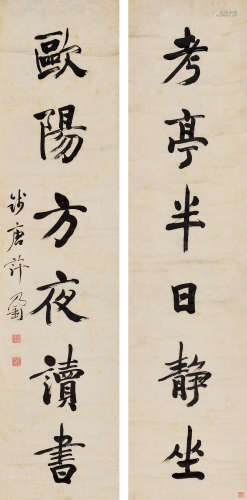 考亭半日靜坐
歐陽方夜讀書
錢唐許乃釗